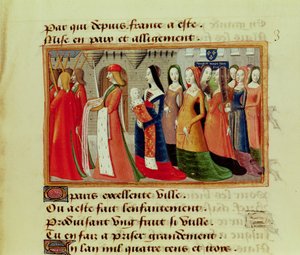 Par qui depuis france a este
Mise en paix et alligement.
3
Paris excellente ville
Ou a este fait lenfantement
Produisant ung fruit si ville
Tu en fais a priser grandement
En lan mil quatre cens et trois